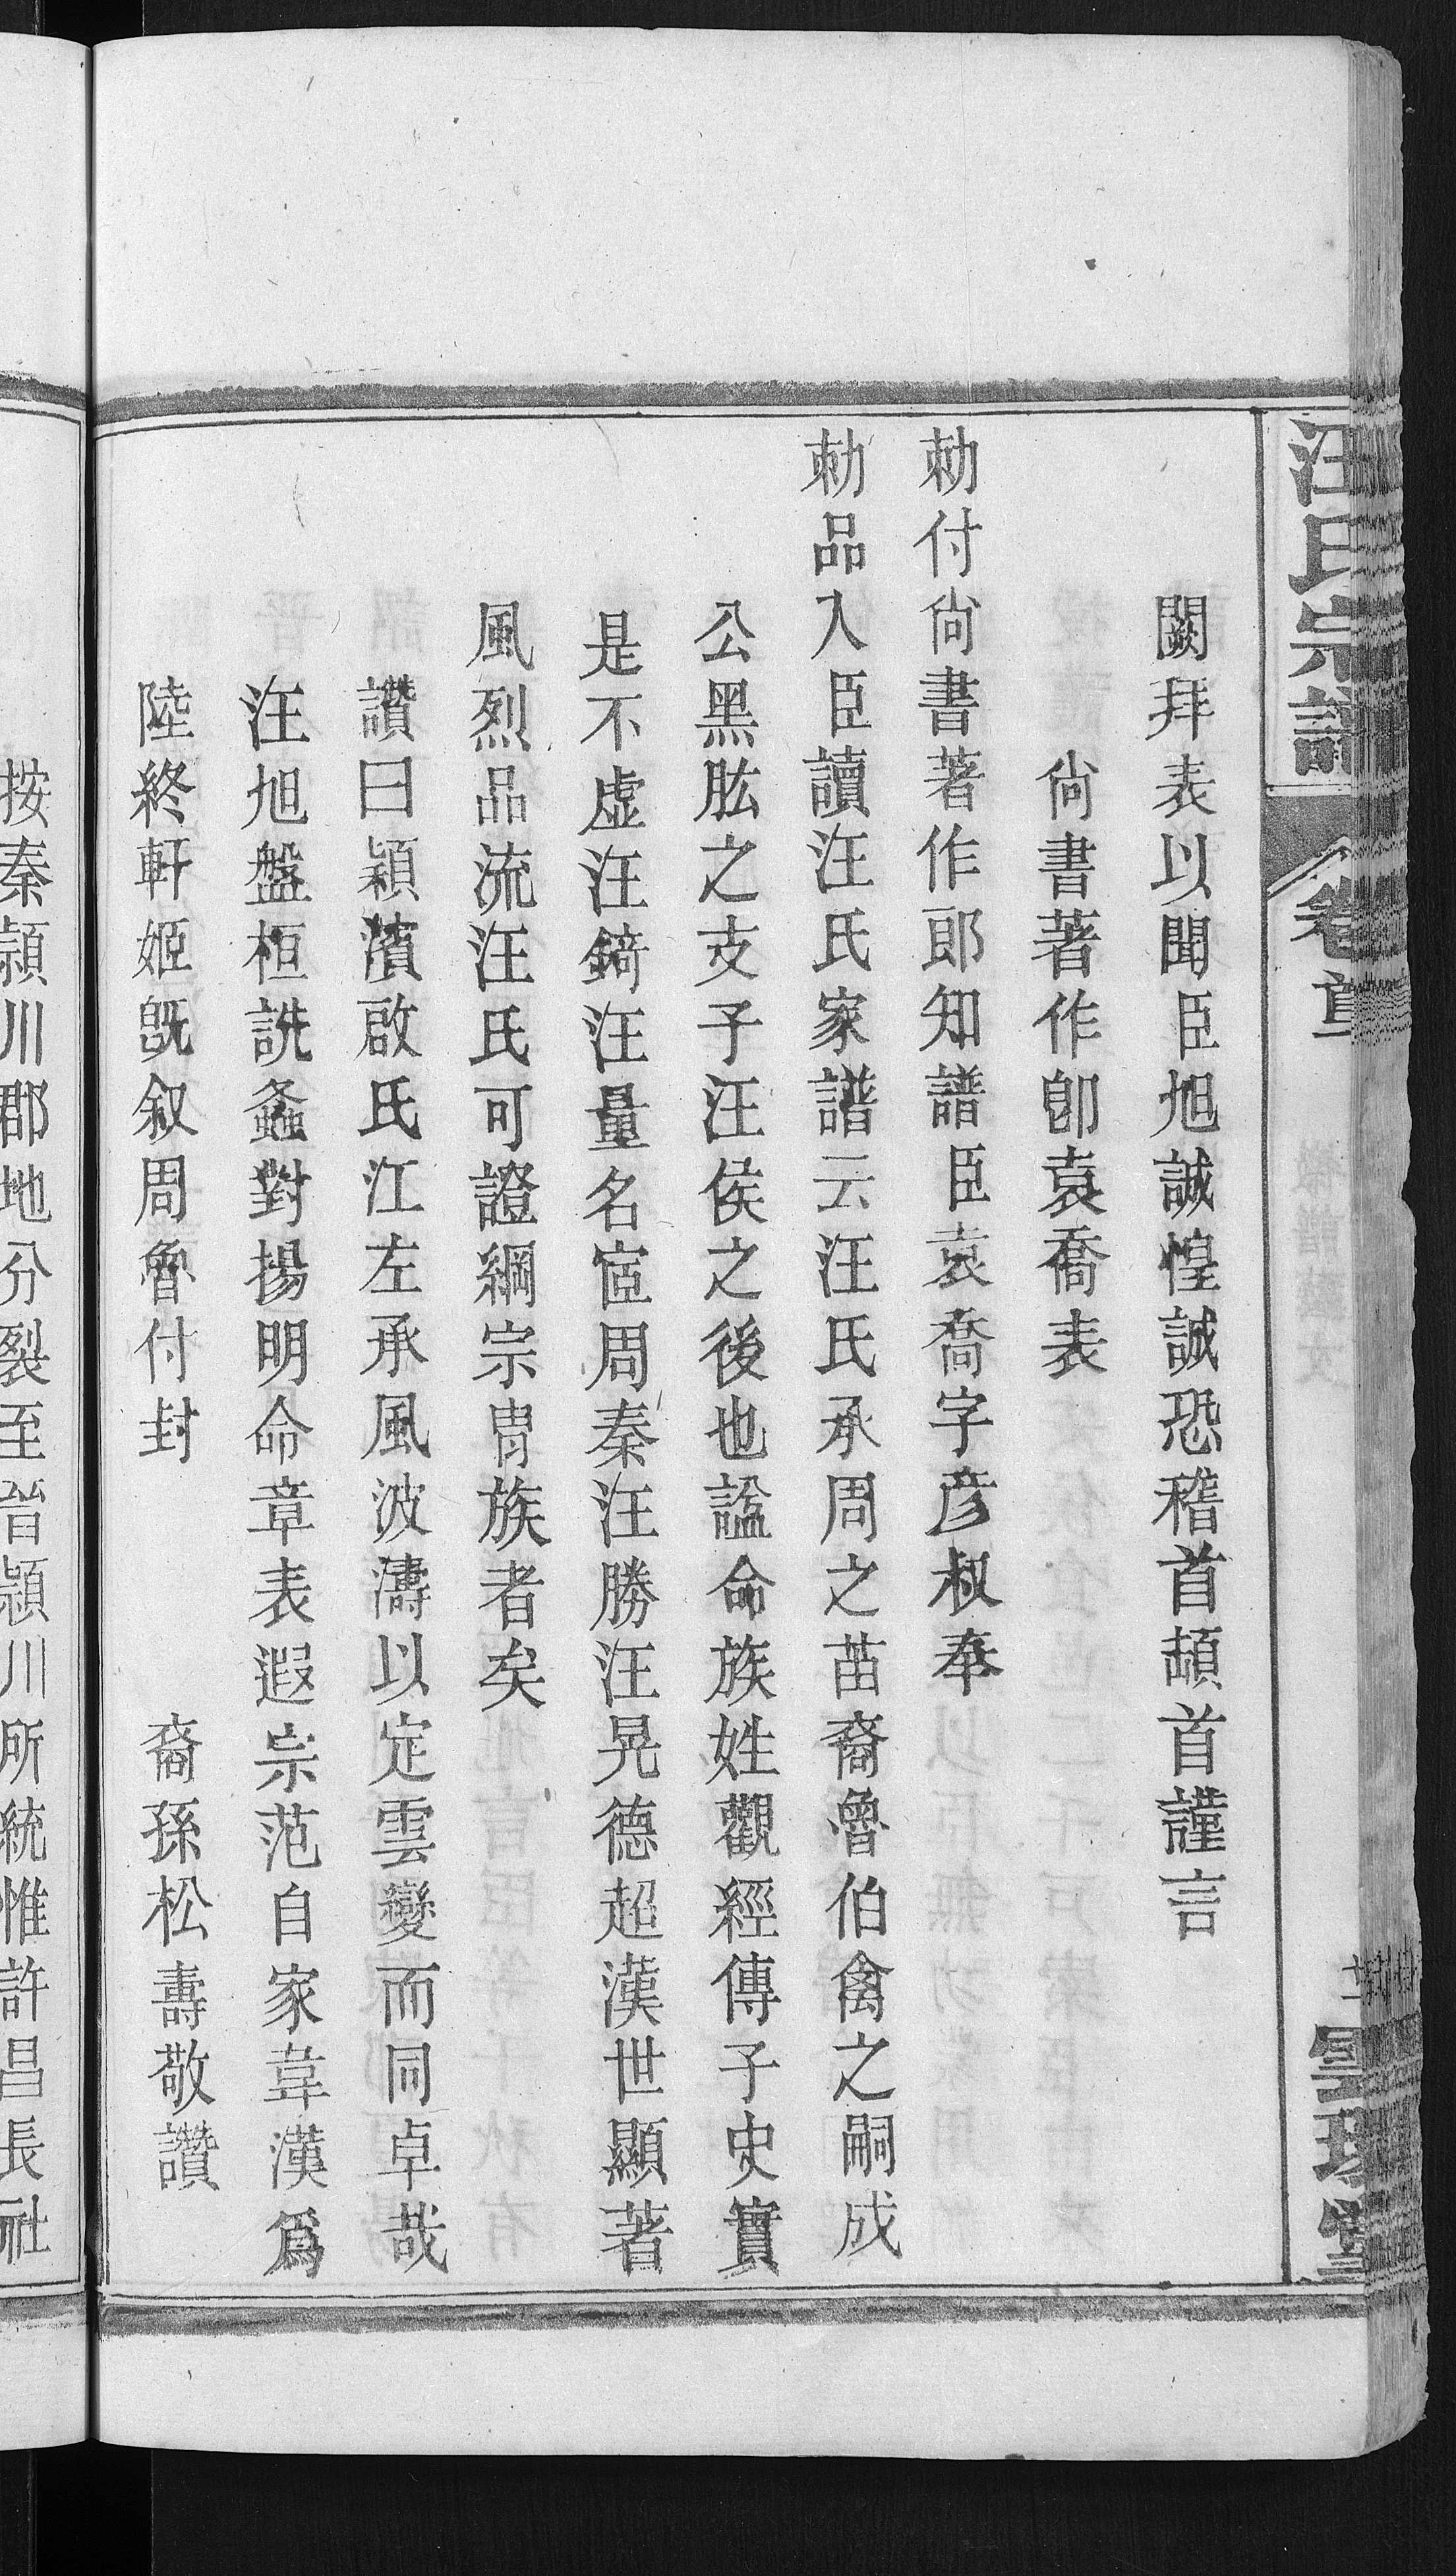 汪氏宗譜
卷首
闕拜表以聞臣旭誠惶誠恐稽首頓首謹言
尙書著作郎袁喬表
勅付尙書著作郎知譜臣袁喬字彦叔奉
勅品入臣讀汪氏家譜云汪氏承周之苗裔魯伯禽之嗣成
公黑肱之支子汪侯之後也諡命族姓觀經傳子史實
是不虛汪錡汪量名宦周秦汪勝汪晃德超漢世顯著
風烈品流汪氏可證綱宗胄族者矣
讚曰穎濱啟氏江左承風波濤以定雲變而同卓哉
汪旭盤桓詵螽對揚明命章表遐宗范自家韋漢爲
陸終軒姬旣叙周魯付封 裔孫松壽敬讚
按秦潁川郡地分裂至晉潁川所統惟許昌長社